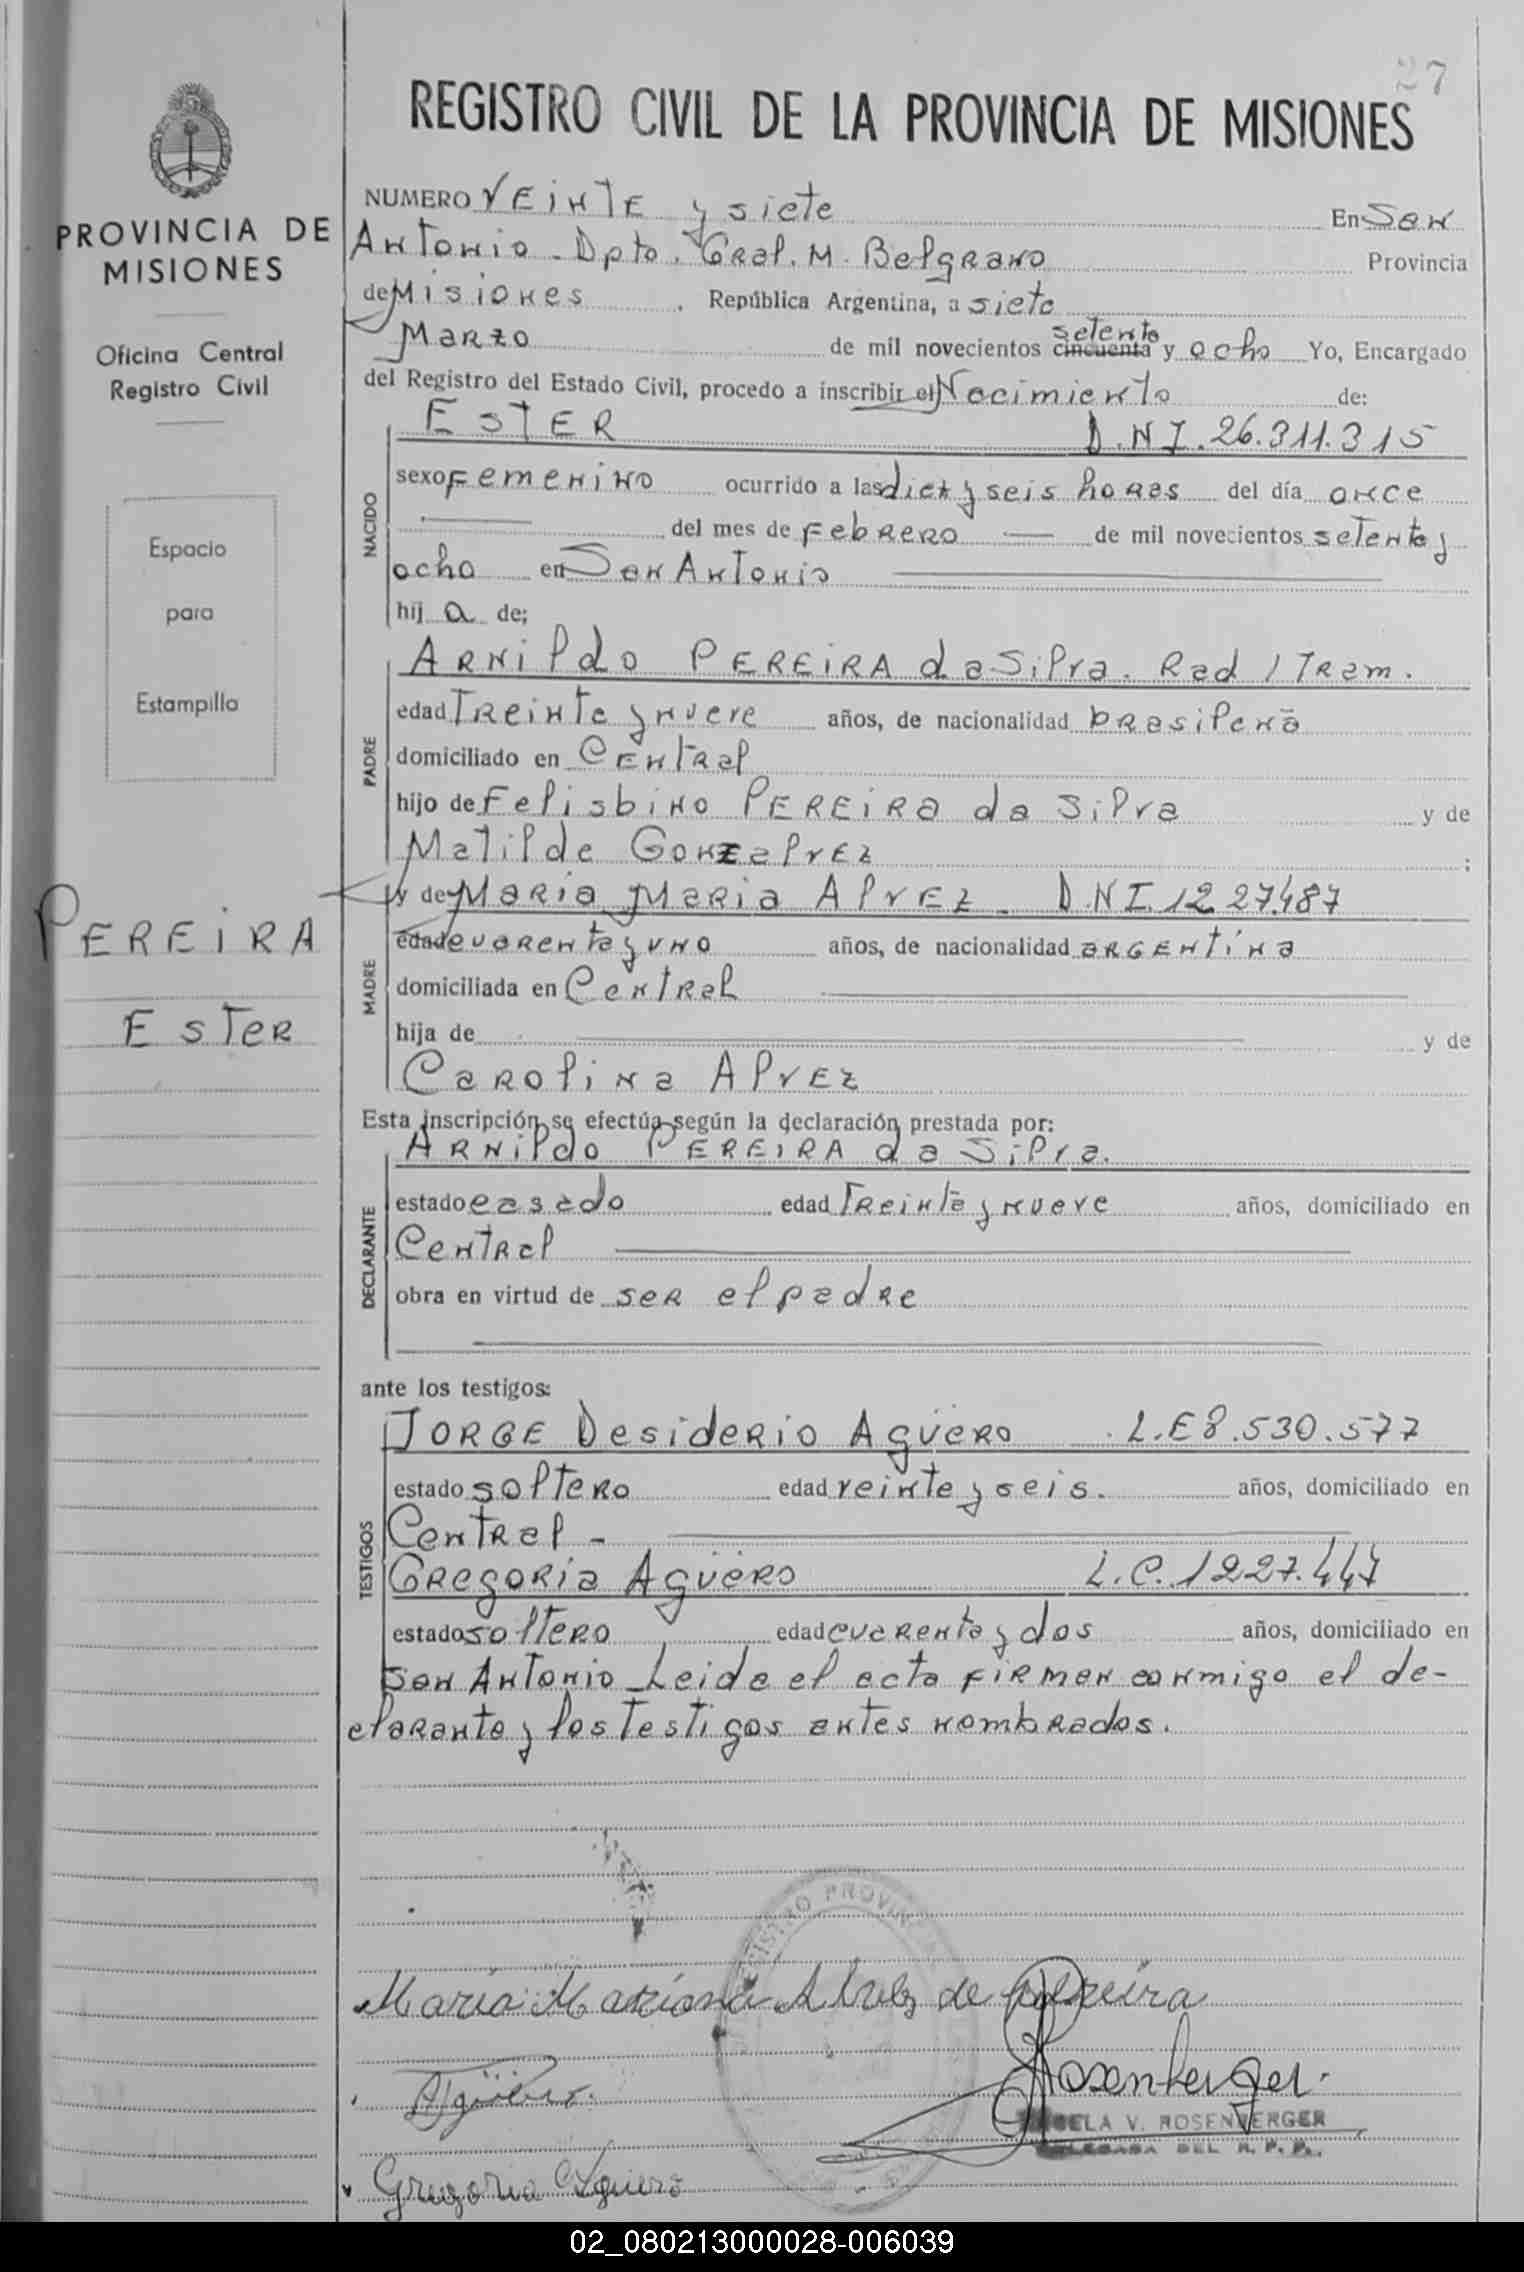 27
REGISTRO CIVIL DE LA PROVINCIA DE MISIONES
PROVINCIA DE
MISIONES
Oficina Central
Registro Civil
Espacio
para
Estampilla
PEREIRA
ESTER
NUMERO VEINTE y siete En San
Antonio - Dpto. Gral. M. Belgrano Provincia
de Misiones República Argentina, a siete
Marzo de mil novecientos cincuenta setenta y ocho Yo, Encargado
del Registro del Estado Civil, procedo a inscribir el Nacimiento de:
NACIDO
ESTER D.N.I. 26.311.315
sexo Femenino ocurrido a las diez y seis horas del día once
del mes de Febrero de mil novecientos setenta y
ocho en San Antonio
hij a de;
PADRE
Arnildo PEREIRA da Silva. Rad / Tram.
edad Treinta y nueve años, de nacionalidad brasileña
domiciliado en Central
hijo de Felisbino PEREIRA da Silva y de
Matilde Gonzalvez ;
y de Maria Maria Alvez - D.N.I. 1227.487
MADRE
edad cuarenta y uno años, de nacionalidad argentina
domiciliada en Central
hija de y de
Carolina Alvez
Esta inscripción se efectúa según la declaración prestada por:
DECLARANTE
Arnildo PEREIRA da Silva.
estado casado edad Treinta y nueve años, domiciliado en
Central
obra en virtud de ser el padre
ante los testigos:
TESTIGOS
JORGE Desiderio Agüero L.E 8.530.577
estado soltero edad veinte y seis. años, domiciliado en
Central -
Gregoria Agüero L.C. 1227.447
estado soltero edad cuarenta y dos años, domiciliado en
San Antonio - Leida el acta firman conmigo el de-
clarante y los Testigos antes nombrados.
Maria Mariana Alvez de Pereira
Agüero.
Rosenberger.
ELA V. ROSENBERGER
DELEGADA DEL R. P. P.
Gregoria Aguero
02_080213000028-006039